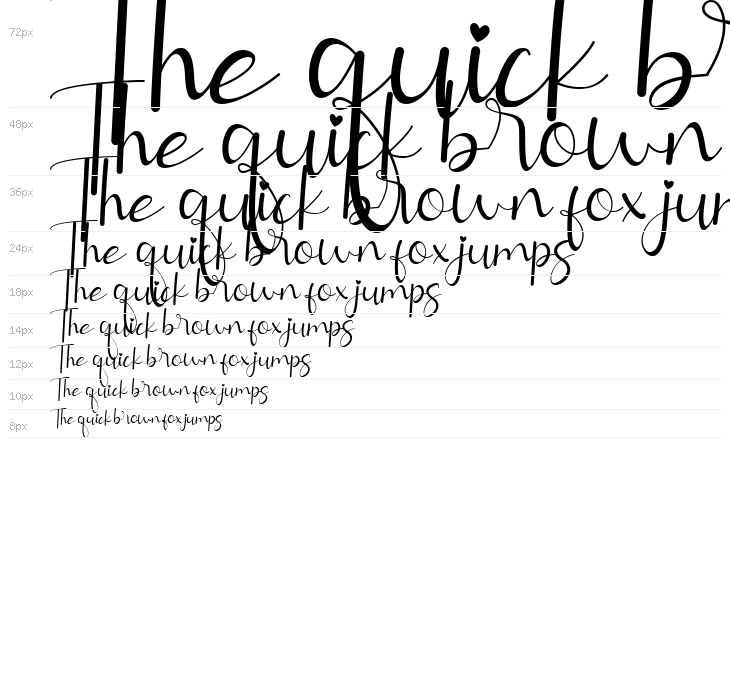 72px The quick b
48px The quick brown
36px The quick brown fox jum
24px The quick brown fox jumps
18px The quick brown fox jumps
14px The quick brown fox jumps
12px The quick brown fox jumps
10px The quick brown fox jumps
8px The quick brown fox jumps